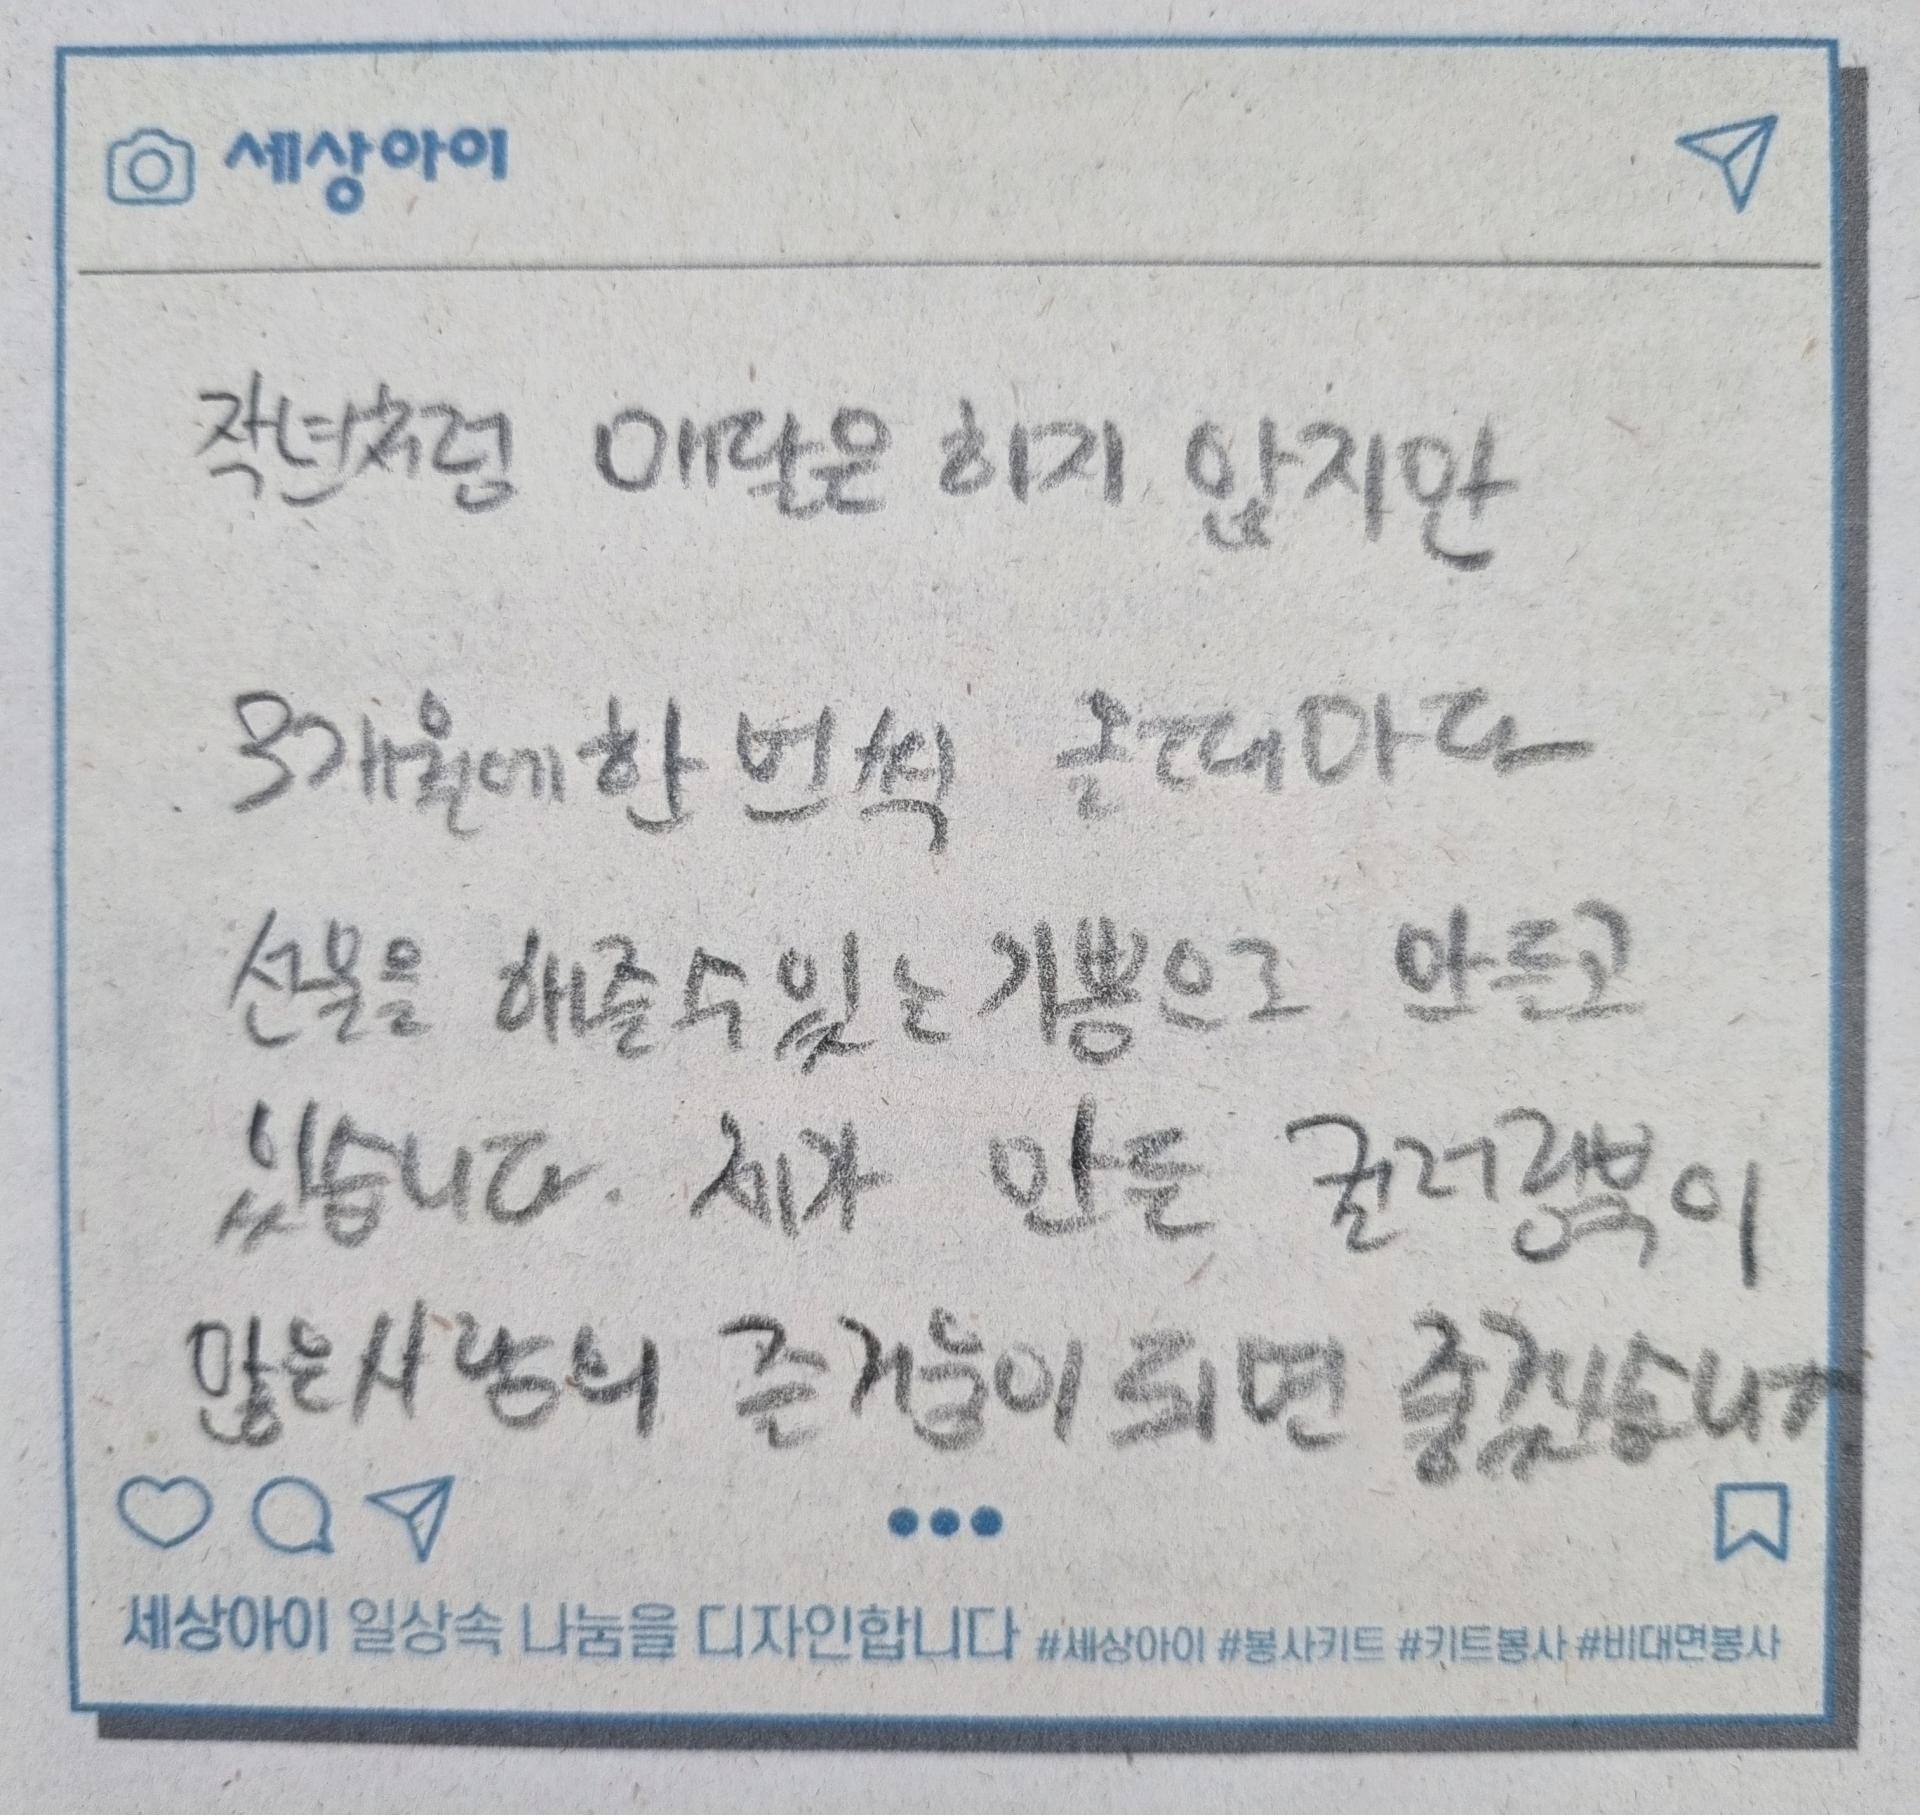 세상아이
작년처럼 매달은 하지 않지만
3개월에 한 번씩 만들때마다
선물을 해줄 수 있는 기쁨으로 만들고
있습니다. 제가 만든 컬러링북이
많은 사람의 즐거움이 되면 좋겠습니다
세상아이 일상속 나눔을 디자인합니다 #세상아이 #봉사키트 #키트봉사 #비대면봉사